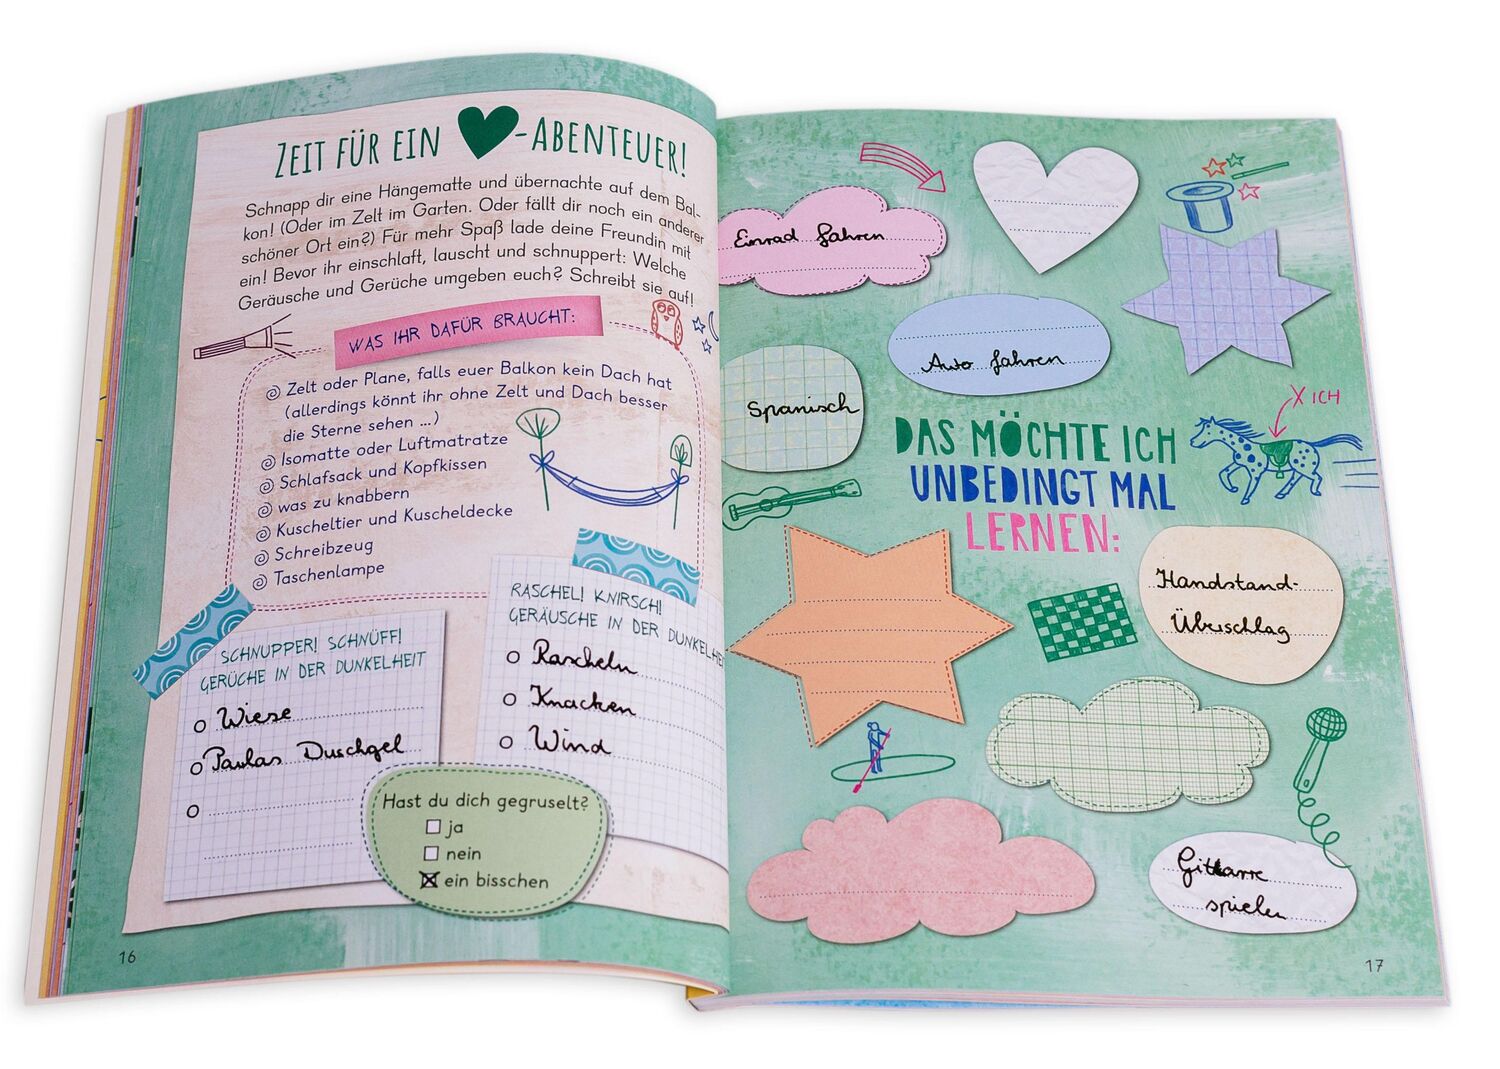 ZEIT FÜR EIN -ABENTEUER!
Schnapp dir eine Hängematte und übernachte auf dem Bal-
kon! (Oder im Zelt im Garten. Oder fällt dir noch ein anderer
schöner Ort ein?) Für mehr Spaß lade deine Freundin mit
ein! Bevor ihr einschlaft, lauscht und schnuppert: Welche
Geräusche und Gerüche umgeben euch? Schreibt sie auf!
WAS IHR DAFÜR BRAUCHT:
Zelt oder Plane, falls euer Balkon kein Dach hat
(allerdings könnt ihr ohne Zelt und Dach besser
die Sterne sehen ...)
Isomatte oder Luftmatratze
Schlafsack und Kopfkissen
was zu knabbern
Kuscheltier und Kuscheldecke
Schreibzeug
Taschenlampe
SCHNUPPER! SCHNÜFF!
GERÜCHE IN DER DUNKELHEIT
Wiese
Paulas Duschgel
RASCHEL! KNIRSCH!
GERÄUSCHE IN DER DUNKELHEIT
Rascheln
Knacken
Wind
Hast du dich gegruselt?
ja
nein
ein bisschen
16
Einrad fahren
Auto fahren
Spanisch
X ICH
DAS MÖCHTE ICH
UNBEDINGT MAL
LERNEN:
Handstand-
Überschlag
Gitarre
spielen
17